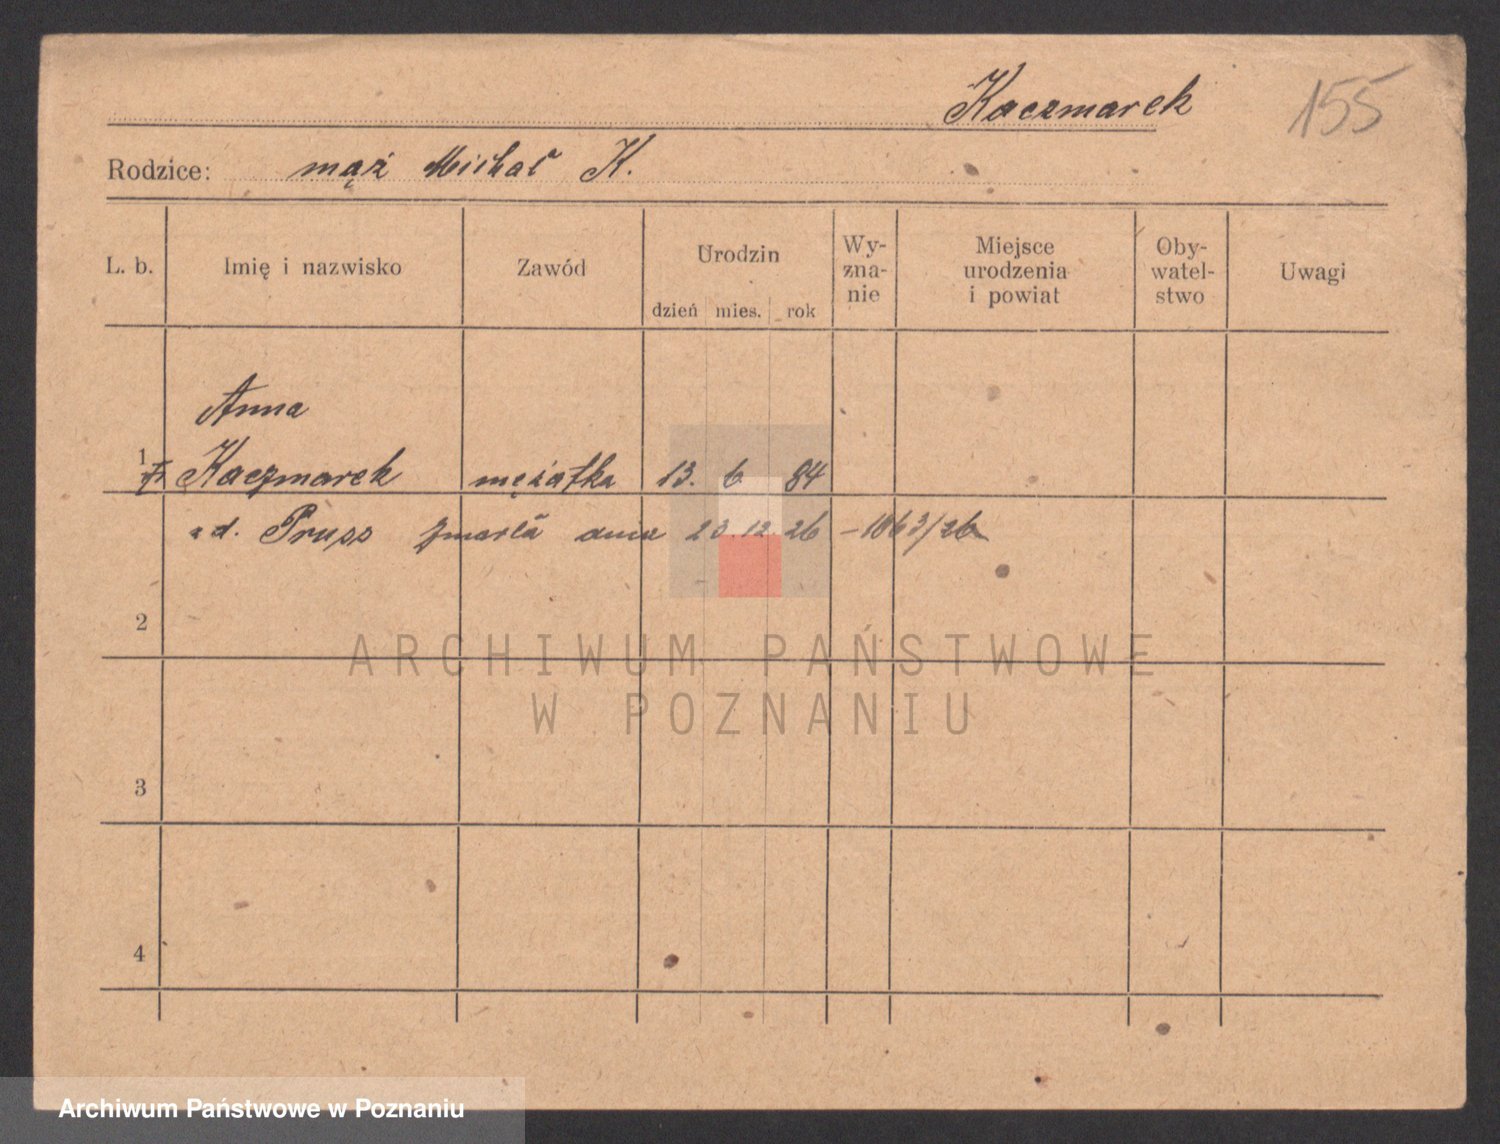 Kaczmarek 155
Rodzice: mąż Michał K.
L. b. Imię i nazwisko Zawód Urodzin dzień mies. rok Wyznanie Miejsce urodzenia i powiat Obywatelstwo Uwagi
Anna
1 Kaczmarek mężatka 13. 6 84
Pruss zmarła dnia 23.12.26 – 1063/26
2
ARCHIWUM PAŃSTWOWE
W POZNANIU
3
4
Archiwum Państwowe w Poznaniu